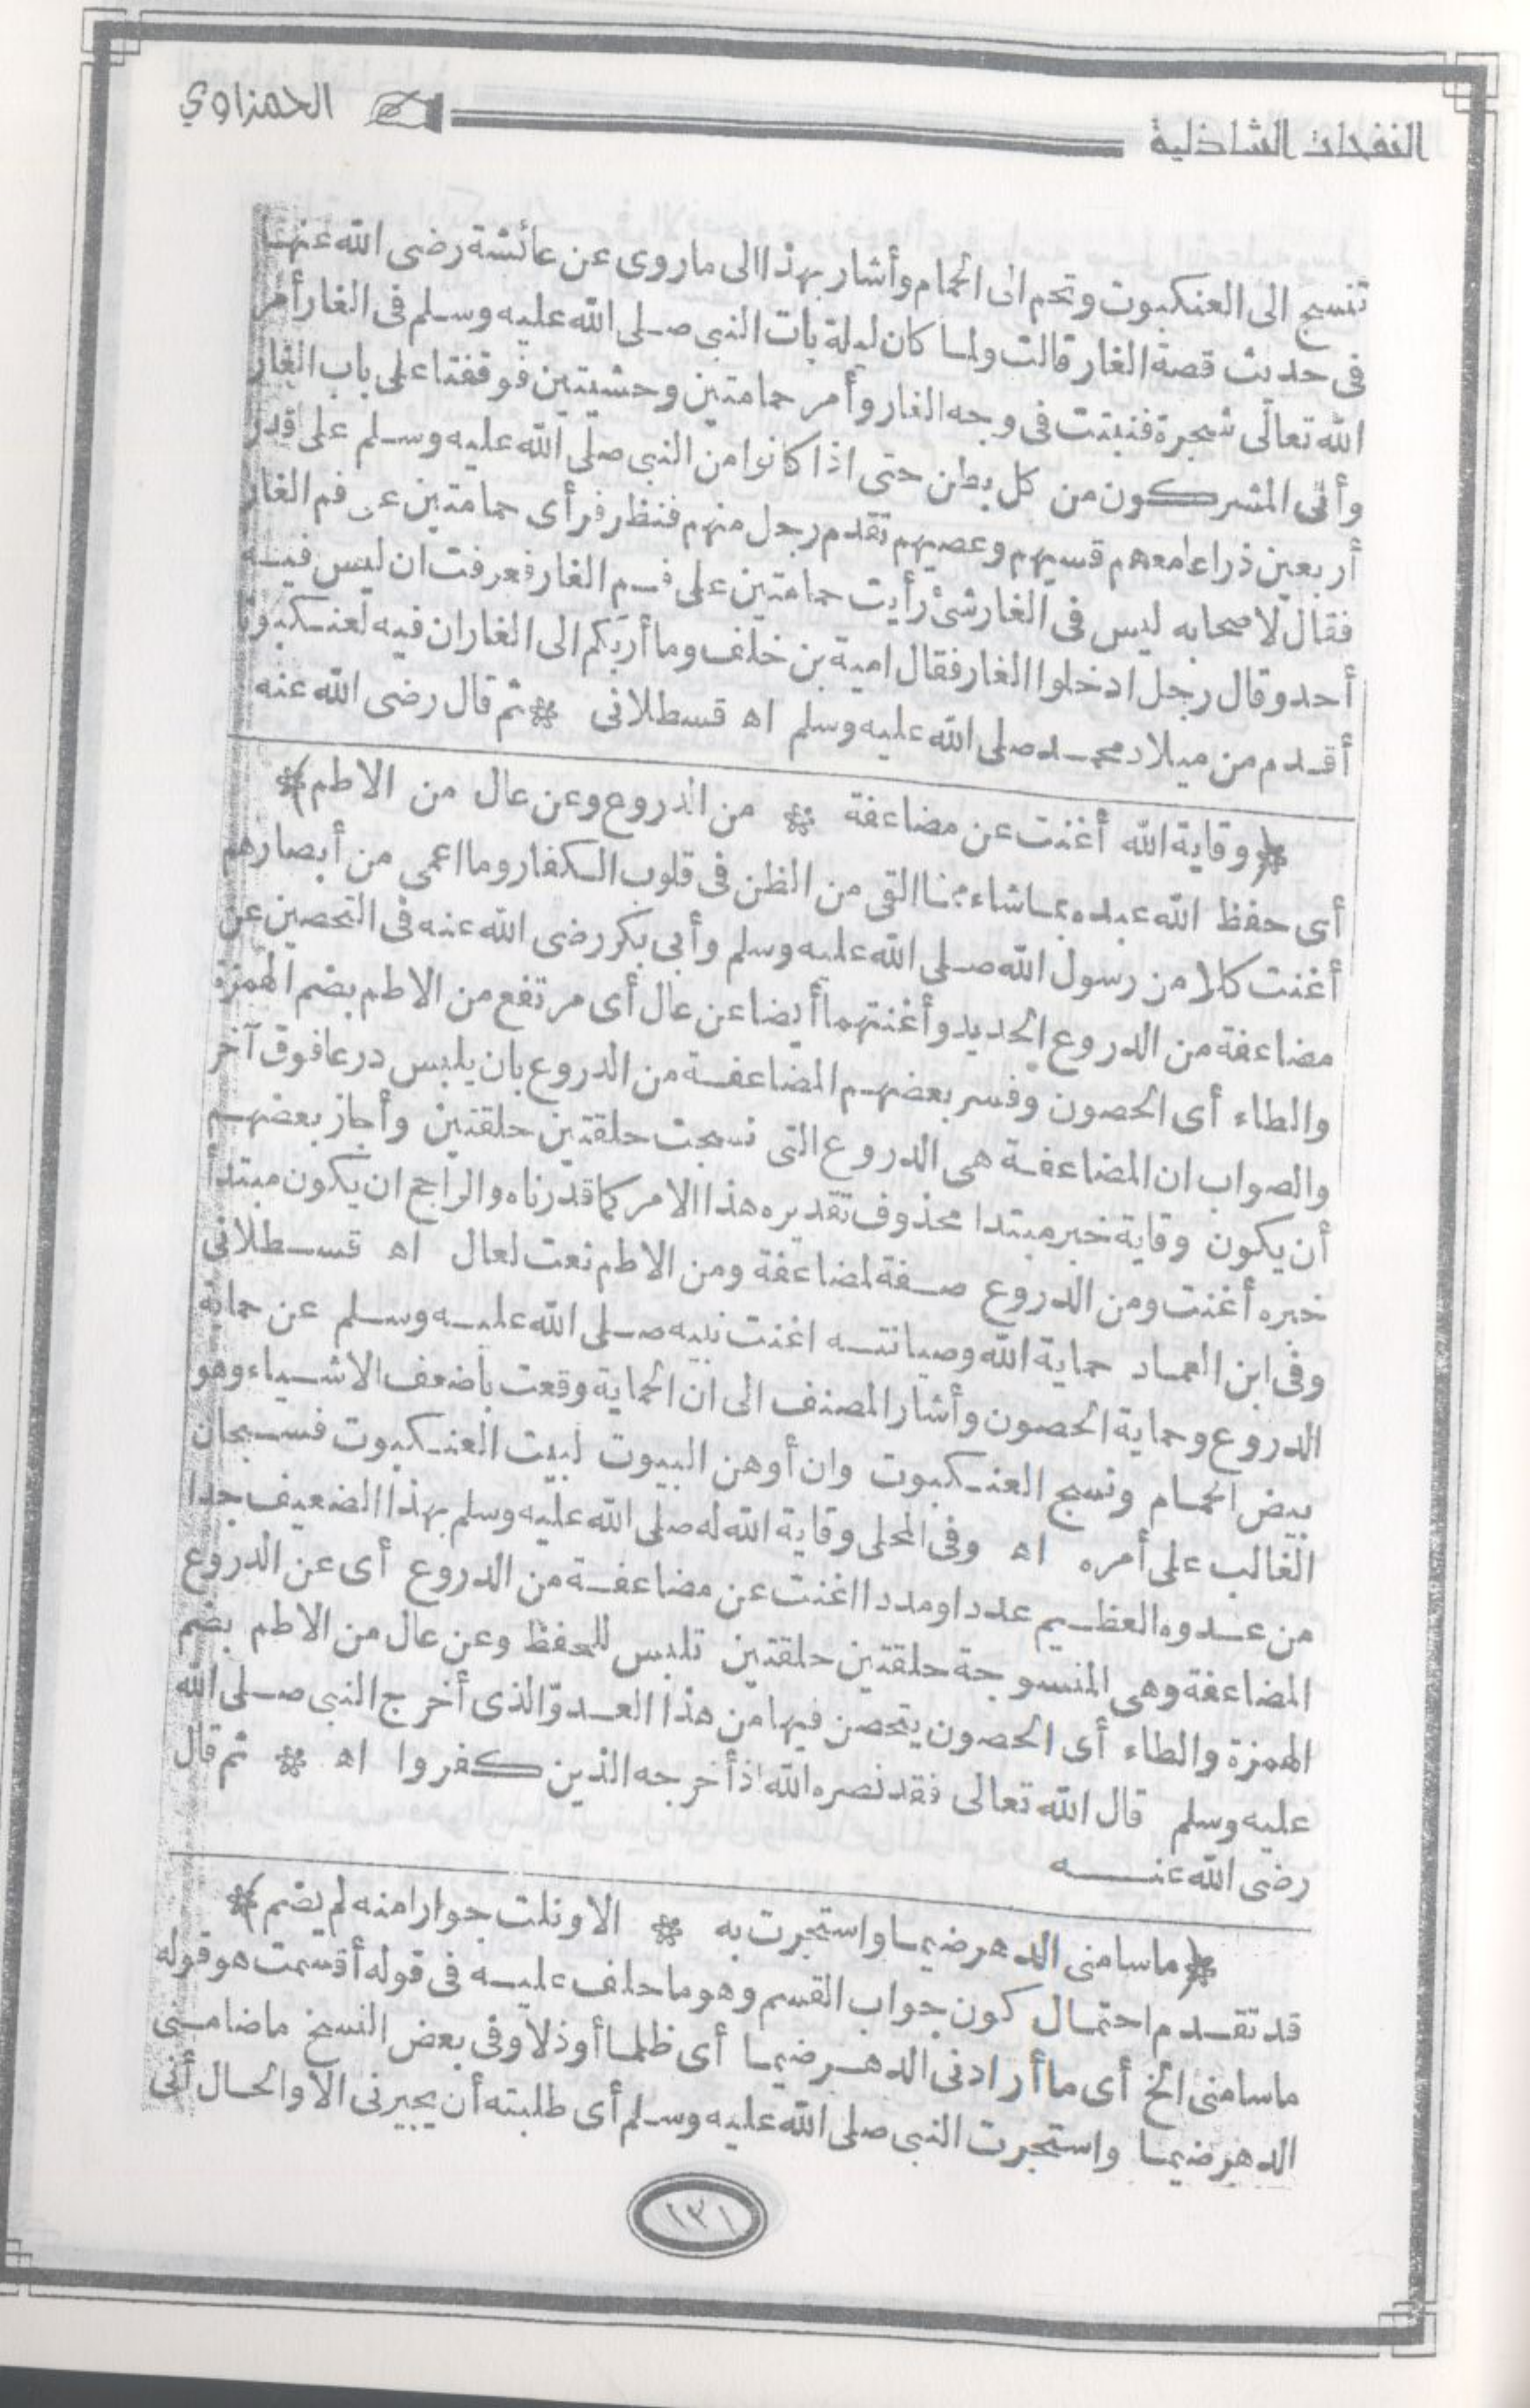 النفحات الشاذلية الحمزاوي
تنسج الى العنكبوت وتحم الى الحمام وأشار بهذا الى ما روى عن عائشة رضى الله عنها
فى حديث قصة الغار قالت ولما كان ليلة بات النبى صلى الله عليه وسلم فى الغار أمر
الله تعالى شجرة فنبتت فى وجه الغار وأمر حمامتين وحشيتين فوقفتا على باب الغار
وأتى المشركون من كل بطن حتى اذا كانوا من النبى صلى الله عليه وسلم على قدر
أربعين ذراعا معهم قسيهم وعصيهم تقدم رجل منهم فنظر فرأى حمامتين على فم الغار
فقال لاصحابه ليس فى الغار شئ رأيت حمامتين على فم الغار فعرفت ان ليس فيه
أحد وقال رجل ادخلوا الغار فقال امية بن خلف وما أربكم الى الغار ان فيه لعنكبوتا
أقدم من ميلاد محمد صلى الله عليه وسلم اه قسطلانى * ثم قال رضى الله عنه
﴿وقاية الله أغنت عن مضاعفة * من الدروع وعن عال من الاطم﴾
أى حفظ الله عبده بما شاء مما القى من الظن فى قلوب الكفار وما اعمى من أبصارهم
أغنت كلا من رسول الله صلى الله عليه وسلم وأبى بكر رضى الله عنه فى التحصين عن
مضاعفة من الدروع الحديد وأغنتهما أيضا عن عال أى مرتفع من الاطم بضم الهمزة
والطاء أى الحصون وفسر بعضهم المضاعفة من الدروع بان يلبس درعا فوق آخر
والصواب ان المضاعفة هى الدروع التى نسجت حلقتين حلقتين وأجاز بعضهم
أن يكون وقاية خبر مبتدا محذوف تقديره هذا الامر كما قدرناه والراجح ان يكون مبتدأ
خبره أغنت ومن الدروع صفة لمضاعفة ومن الاطم نعت لعال اه قسطلانى
وفى ابن العماد حماية الله وصيانته اغنت نبيه صلى الله عليه وسلم عن حماية
الدروع وحماية الحصون وأشار المصنف الى ان الحماية وقعت بأضعف الاشياء وهو
بيض الحمام ونسج العنكبوت وان أوهن البيوت لبيت العنكبوت فسبحان
الغالب على أمره اه وفى المحلى وقاية الله له صلى الله عليه وسلم بهذا الضعيف جدا
من عدوه العظيم عددا ومددا اغنت عن مضاعفة من الدروع أى عن الدروع
المضاعفة وهى المنسوجة حلقتين حلقتين تلبس للحفظ وعن عال من الاطم بضم
الهمزة والطاء أى الحصون يتحصن فيها من هذا العدوّ الذى أخرج النبى صلى الله
عليه وسلم قال الله تعالى فقد نصره الله اذ أخرجه الذين كفروا اه * ثم قال
رضى الله عنه
﴿ما سامنى الدهر ضيما واستجرت به * الا ونلت جوارا منه لم يضم﴾
قد تقدم احتمال كون جواب القسم وهو ما حلف عليه فى قوله أقسمت هو قوله
ما سامنى الخ أى ما أرادنى الدهر ضيما أى ظلما أو ذلا وفى بعض النسخ ما ضامنى
الدهر ضيما واستجرت النبى صلى الله عليه وسلم أى طلبته أن يجيرنى الا والحال أنى
١٣١